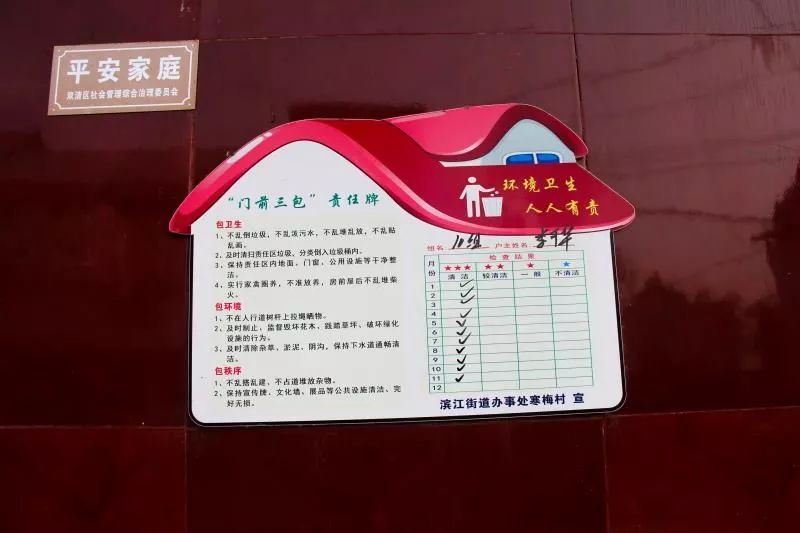 平安家庭
双清区社会管理综合治理委员会
环境卫生
人人有责
“门前三包”责任牌
包卫生
1、不乱倒垃圾，不乱泼污水，不乱堆乱放，不乱贴
乱画。
2、及时清扫责任区垃圾，分类倒入垃圾桶内。
3、保持责任区内地面、门窗、公用设施等干净整
洁。
4、实行家禽圈养，不准放养，房前屋后不乱堆柴
火。
包环境
1、不在人行道树杆上拉绳晒物。
2、及时制止、监督毁坏花木、践踏草坪、破坏绿化
设施的行为。
3、及时清除杂草、淤泥、阴沟，保持下水道通畅清
洁。
包秩序
1、不乱搭乱建、不占道堆放杂物。
2、保持宣传牌、文化墙、展品等公共设施清洁、完
好无损。
组名 户主姓名
月份 检查结果
★★★ ★★ ★ ★
清洁 较清洁 一般 不清洁
1 ✓
2 ✓
3 ✓
4
5 ✓
6 ✓
7 ✓
8 ✓
9 ✓
10 ✓
11 ✓
12
滨江街道办事处寒梅村 宣